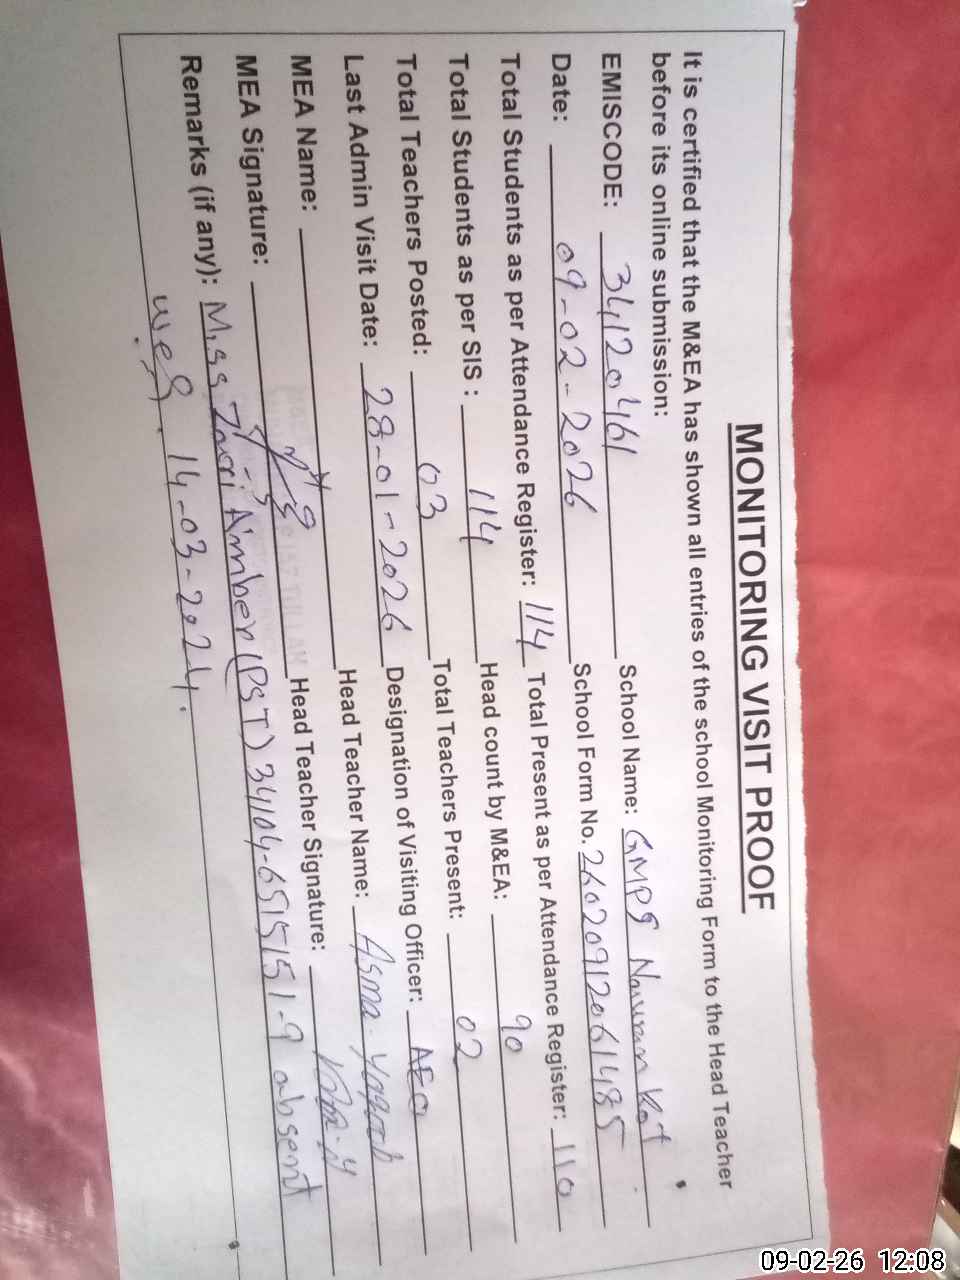 MONITORING VISIT PROOF
It is certified that the M&EA has shown all entries of the school Monitoring Form to the Head Teacher
before its online submission:
EMISCODE: 34120461 School Name: GMPS Kot
Date: 09-02-2026 School Form No. 26020912061485
Total Students as per Attendance Register: 114 Total Present as per Attendance Register: 110
Total Students as per SIS : 114 Head count by M&EA: 90
Total Teachers Posted: 03 Total Teachers Present: 02
Last Admin Visit Date: 28-01-2026 Designation of Visiting Officer: AEO
MEA Name: Head Teacher Name: Asma
MEA Signature: Head Teacher Signature:
Remarks (if any): Miss Amber (PST) 34104-6515151-9 absent
wef. 14-03-2024.
09-02-26 12:08